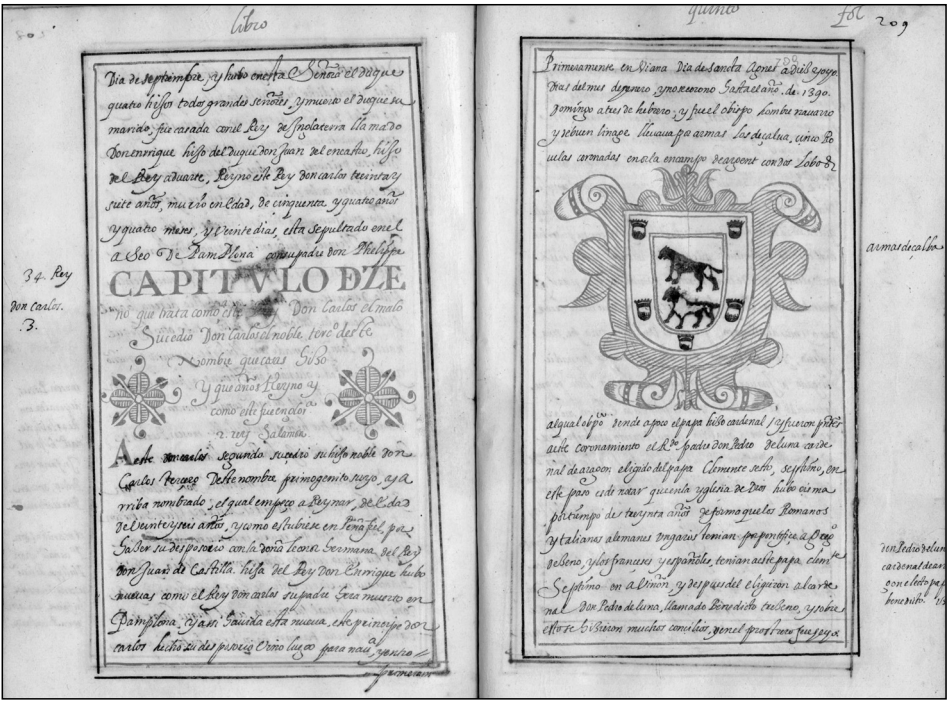 libro
Dia de septiembre, y hubo en esta Señora el duque
quatro hijos todos grandes señores, y muerto el duque su
marido, fue casada con el Rey de Inglaterra llamado
Don enrrique hijo del duque don Juan de lencastro, hijo
del Rey aduarte, Reyno este Rey don carlos treinta y
siete años, murio en Edad, de cinquenta y quatro años
y quatro meses, y veinte dias, esta sepultado en el
a Seo De Pamplona con su padre don Phelippe
CAPITVLO DZE
no que trata como este Rey Don Carlos el malo
Sucedio Don Carlos el noble terc.o deste
Nombre que casas hiso
Y que años Reyno y
como este fue en
r. rey Salamon.
34. Rey
Don Carlos.
3.
A este don carlos segundo sucedio su hijo noble don
Carlos tercero Deste nombre primogenito suyo, ya a
rriba nombrado, el qual empeço a Reynar, de Edad
de veinte y seis años, y como estubiese en Peñafiel por
haser su desposorio con la doña leonor hermana del Rey
Don Juan de Castilla. hija del Rey Don Enrrique hubo
nuevas como el Rey don carlos su padre hera muerto en
Pamplona, y assi havida esta nueva, este principe don
carlos hecho su desposorio Vino luego para nau.a, y entro
Primeramente
quinto
fol 209
Primeramente en Viana Dia de Sancta Agnes a Dieb y ocho
dias del mes de henero, y no se corono hasta el año. de. 1390.
Domingo a tres de hebrero, y fue el obispo hombre navarro
y de buen linage llevava por armas las de çalva, cinco Ro
uelas coronadas en orla en campo de argent con dos Lobos
armas de çalba
al qual obpo dende a poco el papa hiso cardenal, y fueron presen
a este coronamiento el R.do padre don Pedro de luna carde
nal de aragon eligido del papa Clemente sesto, septimo, en
este paso es de notar que en la yglesia de Dios hubo cisma
por tiempo de treynta años de forma que los Romanos
y talianos alemanes ungaros tenian por pontifice a
y los franceses y españoles, tenian a este papa clemte
Septimo en aViñon, y despues del eligieron al carde
nal Don Pedro de luna, llamado Benedicto treseno, y sobre
esto se hisieron muchos concilios, y en el prostrero
don Pedro de lun
cardenal de ara
gon electo pap
benedicto.